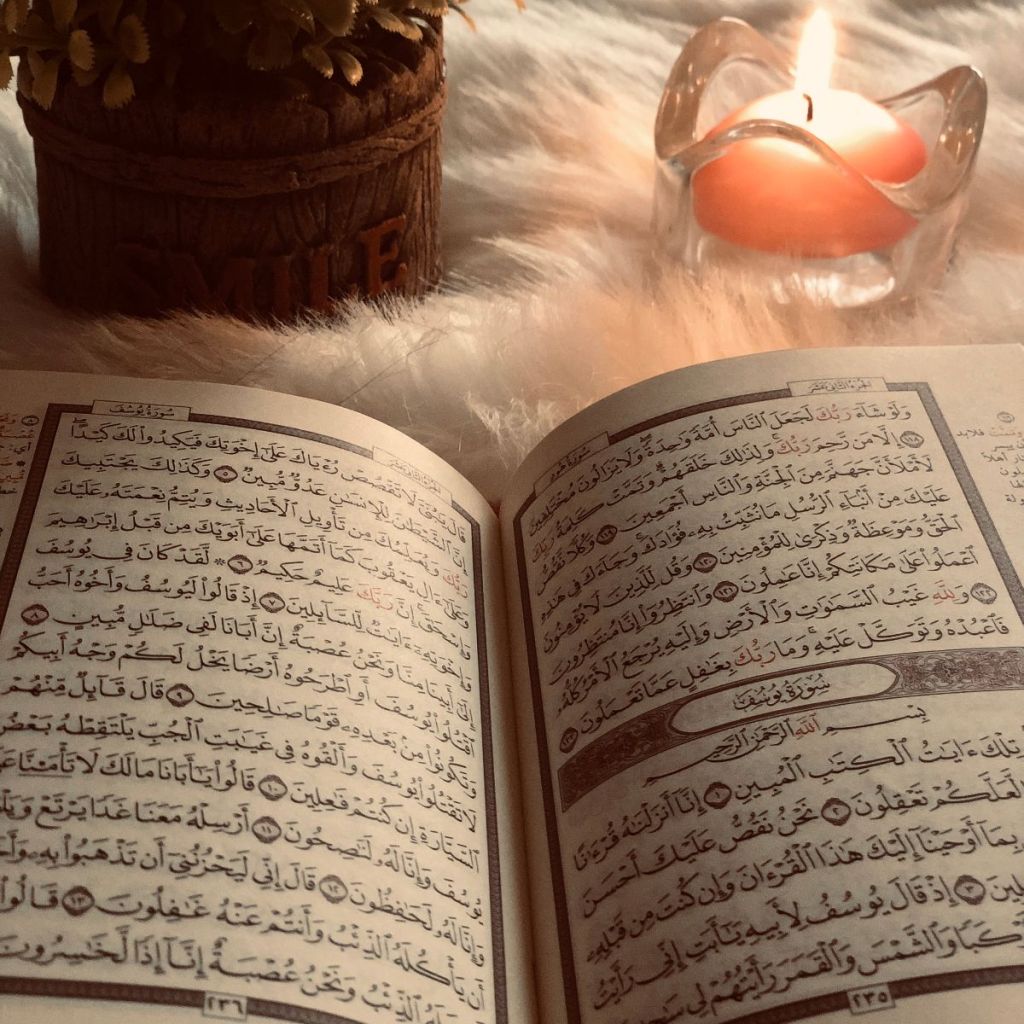 سُورَةُ هُودٍ
الجُزْءُ الثَّانِي عَشَر
وَلَوْ شَآءَ رَبُّكَ لَجَعَلَ ٱلنَّاسَ أُمَّةً وَٰحِدَةً وَلَا يَزَالُونَ مُخْتَلِفِينَ ١١٨
إِلَّا مَن رَّحِمَ رَبُّكَ وَلِذَٰلِكَ خَلَقَهُمْ وَتَمَّتْ كَلِمَةُ رَبِّكَ
لَأَمْلَأَنَّ جَهَنَّمَ مِنَ ٱلْجِنَّةِ وَٱلنَّاسِ أَجْمَعِينَ ١١٩ وَكُلًّا نَّقُصُّ
عَلَيْكَ مِنْ أَنۢبَآءِ ٱلرُّسُلِ مَا نُثَبِّتُ بِهِۦ فُؤَادَكَ وَجَآءَكَ فِي هَٰذِهِ
ٱلْحَقُّ وَمَوْعِظَةٌ وَذِكْرَىٰ لِلْمُؤْمِنِينَ ١٢٠ وَقُل لِّلَّذِينَ لَا يُؤْمِنُونَ
ٱعْمَلُوا۟ عَلَىٰ مَكَانَتِكُمْ إِنَّا عَٰمِلُونَ ١٢١ وَٱنتَظِرُوٓا۟ إِنَّا مُنتَظِرُونَ
١٢٢ وَلِلَّهِ غَيْبُ ٱلسَّمَٰوَٰتِ وَٱلْأَرْضِ وَإِلَيْهِ يُرْجَعُ ٱلْأَمْرُ كُلُّهُۥ
فَٱعْبُدْهُ وَتَوَكَّلْ عَلَيْهِ وَمَا رَبُّكَ بِغَٰفِلٍ عَمَّا تَعْمَلُونَ ١٢٣
سُورَةُ يُوسُفَ
بِسْمِ ٱللَّهِ ٱلرَّحْمَٰنِ ٱلرَّحِيمِ
تِلْكَ ءَايَٰتُ ٱلْكِتَٰبِ ٱلْمُبِينِ ١ إِنَّآ أَنزَلْنَٰهُ قُرْءَٰنًا
لَّعَلَّكُمْ تَعْقِلُونَ ٢ نَحْنُ نَقُصُّ عَلَيْكَ أَحْسَنَ
بِمَآ أَوْحَيْنَآ إِلَيْكَ هَٰذَا ٱلْقُرْءَانَ وَإِن كُنتَ مِن قَبْلِهِۦ
٣ إِذْ قَالَ يُوسُفُ لِأَبِيهِ يَٰٓأَبَتِ إِنِّي رَأَيْتُ
وَٱلشَّمْسَ وَٱلْقَمَرَ رَأَيْتُهُمْ لِي
٢٣٥
الجُزْءُ الثَّانِي عَشَر
سُورَةُ يُوسُفَ
قَالَ يَٰبُنَيَّ لَا تَقْصُصْ رُءْيَاكَ عَلَىٰٓ إِخْوَتِكَ فَيَكِيدُوا۟ لَكَ كَيْدًا
إِنَّ ٱلشَّيْطَٰنَ لِلْإِنسَٰنِ عَدُوٌّ مُّبِينٌ ٥ وَكَذَٰلِكَ يَجْتَبِيكَ
رَبُّكَ وَيُعَلِّمُكَ مِن تَأْوِيلِ ٱلْأَحَادِيثِ وَيُتِمُّ نِعْمَتَهُۥ عَلَيْكَ
وَعَلَىٰٓ ءَالِ يَعْقُوبَ كَمَآ أَتَمَّهَا عَلَىٰٓ أَبَوَيْكَ مِن قَبْلُ إِبْرَٰهِيمَ
وَإِسْحَٰقَ إِنَّ رَبَّكَ عَلِيمٌ حَكِيمٌ ٦ لَّقَدْ كَانَ فِي يُوسُفَ
وَإِخْوَتِهِۦٓ ءَايَٰتٌ لِّلسَّآئِلِينَ ٧ إِذْ قَالُوا۟ لَيُوسُفُ وَأَخُوهُ أَحَبُّ
إِلَىٰٓ أَبِينَا مِنَّا وَنَحْنُ عُصْبَةٌ إِنَّ أَبَانَا لَفِي ضَلَٰلٍ مُّبِينٍ ٨
ٱقْتُلُوا۟ يُوسُفَ أَوِ ٱطْرَحُوهُ أَرْضًا يَخْلُ لَكُمْ وَجْهُ أَبِيكُمْ
وَتَكُونُوا۟ مِنۢ بَعْدِهِۦ قَوْمًا صَٰلِحِينَ ٩ قَالَ قَآئِلٌ مِّنْهُمْ
لَا تَقْتُلُوا۟ يُوسُفَ وَأَلْقُوهُ فِي غَيَٰبَتِ ٱلْجُبِّ يَلْتَقِطْهُ بَعْضُ
ٱلسَّيَّارَةِ إِن كُنتُمْ فَٰعِلِينَ ١٠ قَالُوا۟ يَٰٓأَبَانَا مَا لَكَ لَا تَأْمَ۫نَّا
يُوسُفَ وَإِنَّا لَهُۥ لَنَٰصِحُونَ ١١ أَرْسِلْهُ مَعَنَا غَدًا يَرْتَعْ
وَإِنَّا لَهُۥ لَحَٰفِظُونَ ١٢ قَالَ إِنِّي لَيَحْزُنُنِيٓ أَن تَذْهَبُوا۟ بِهِۦ
أَن يَأْكُلَهُ ٱلذِّئْبُ وَأَنتُمْ عَنْهُ غَٰفِلُونَ ١٣ قَالُوا۟
ٱلذِّئْبُ وَنَحْنُ عُصْبَةٌ إِنَّآ إِذًا لَّخَٰسِرُونَ
٢٣٦
SMILE